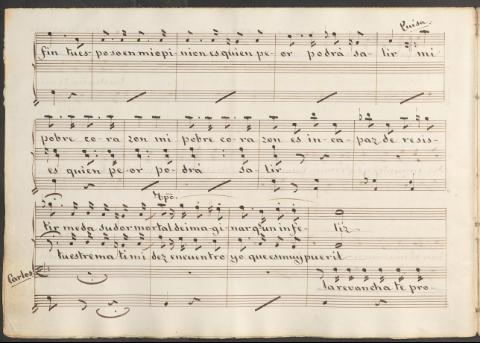 Luisa
fin tu es- poso en mi o pi- nion es quien pe- or podrá sa- lir mi
pobre co- ra zon mi pobre co- ra zon es in ca- paz de resis-
es quien pe- or po- drá sa- lir
tir me da sudor mortal de ima gi- nar q.e un in fe- liz
tu estrema timi dez encuentro yo que es muy pueril
Carlos
la revancha te pro-